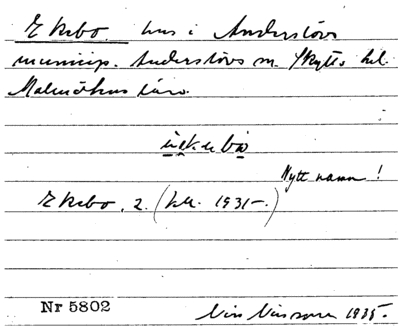 Ekebo. hus i Anderslövs
municip. Anderslövs sn. Skytts hd.
Malmöhus län.
Nytt namn!
Ekebo, 2. (hus. 1931-.)
Nr 5802
1935.